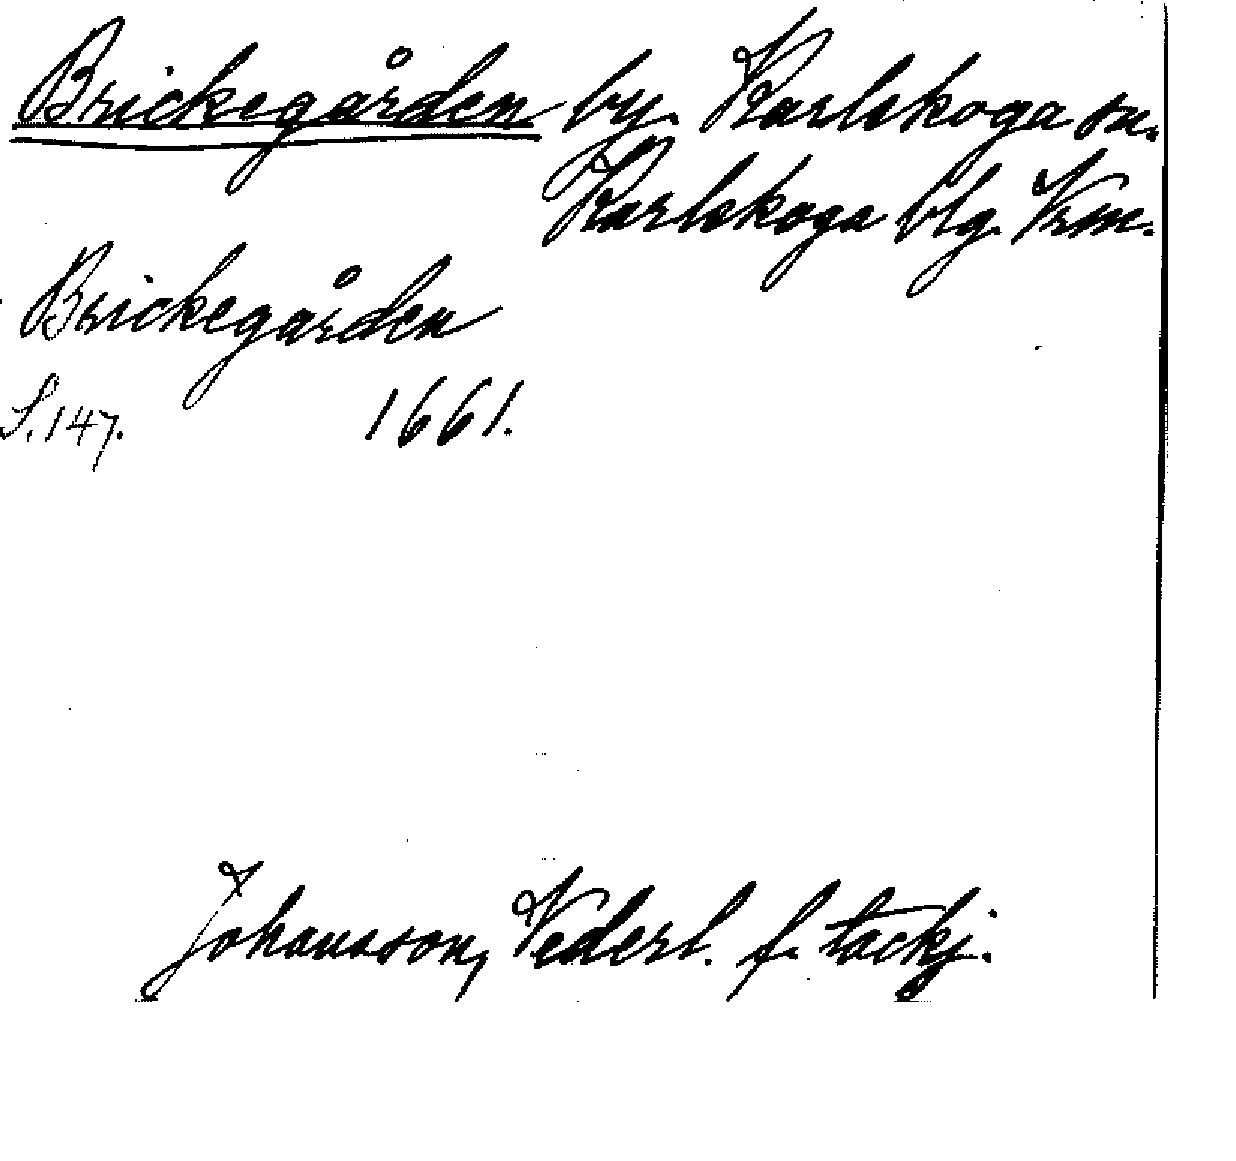 Brickegården by. Karlskoga sn.
Karlskoga blg. Vrm.
Brickegården
S.147. 1661.
Johansson, Vederl. f. tackj.